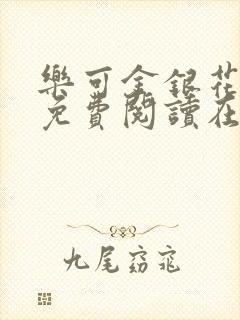 樂可金銀花
免費閱讀在
九尾窈窕